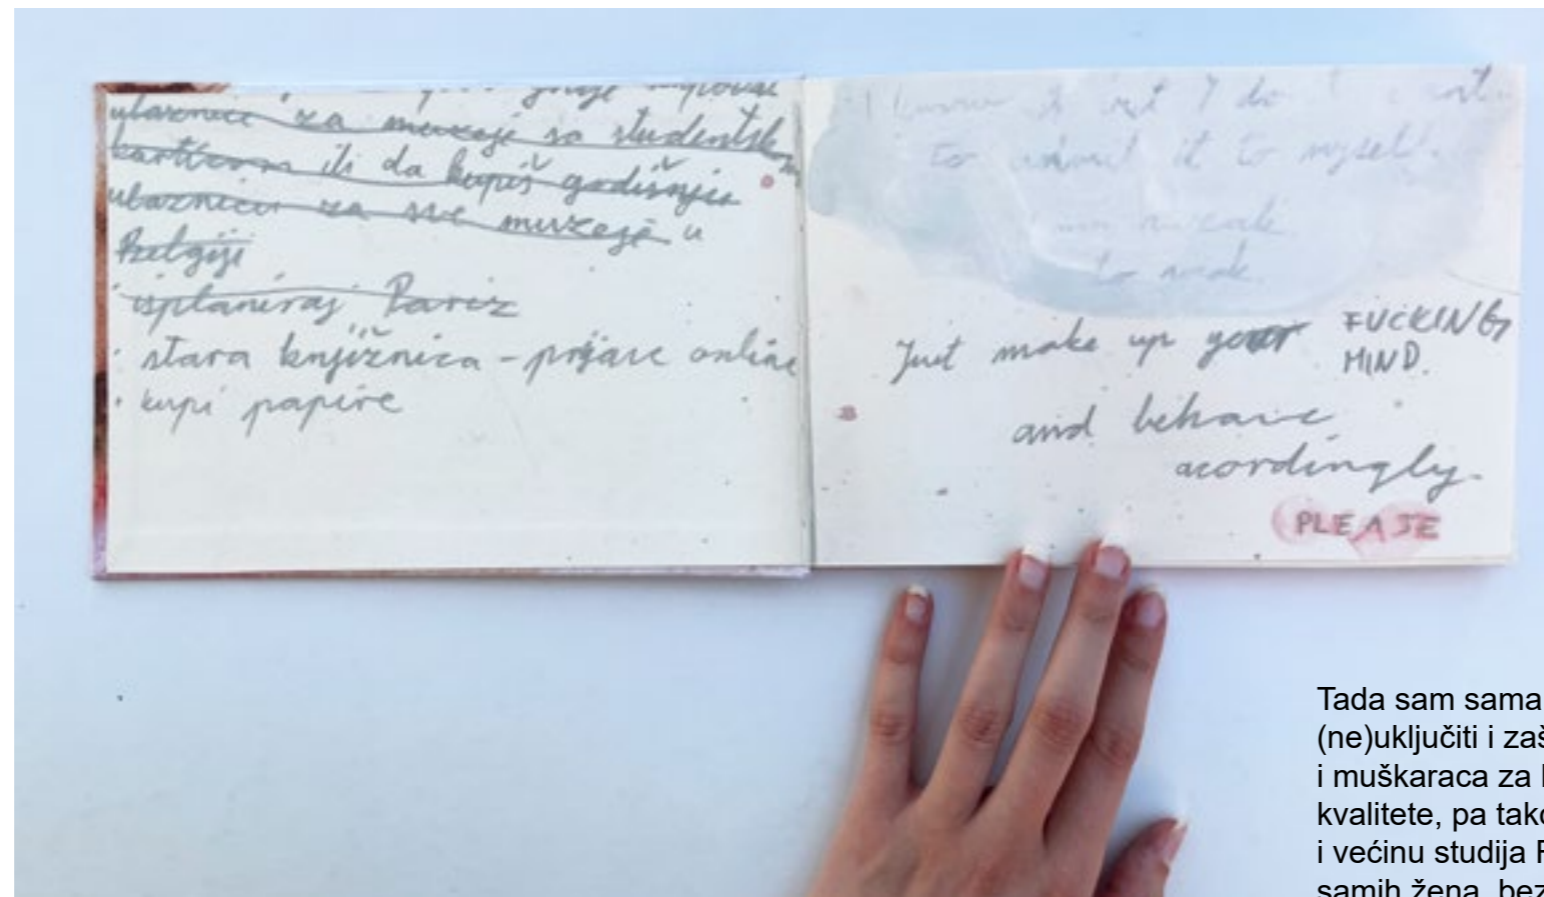 ulaznice za muzeje sa studentsk
karticom ili da kupiš godišnju
ulaznicu za sve muzeje u
Belgiji
· isplaniraj Pariz
· stara knjižnica - prijave online
· kupi papire
I do
to admit it to myself.
Just make up your FUCKING
MIND.
and behave
acordingly.
PLEASE
Tada sam sama
(ne)uključiti i zaš
i muškaraca za
kvalitete, pa tako
i većinu studija
samih žena, bez